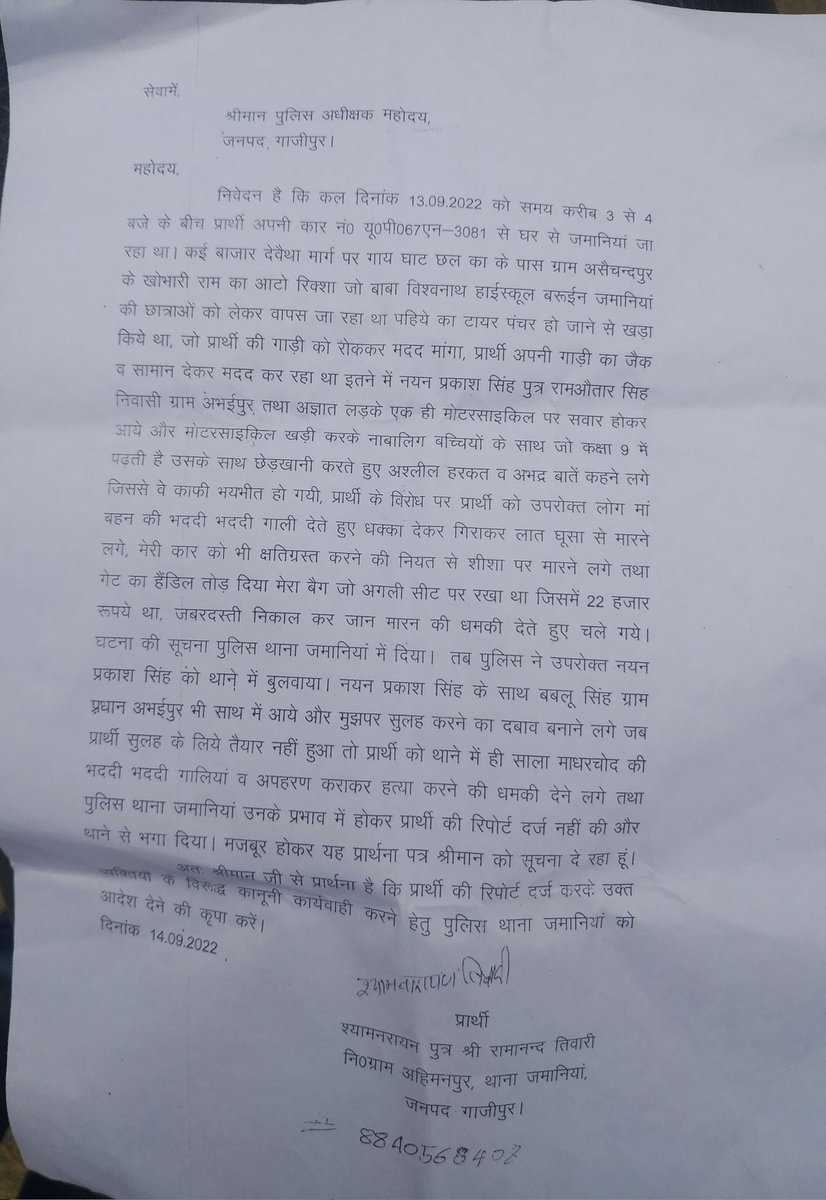 सेवामें,
श्रीमान पुलिस अधीक्षक महोदय,
जनपद गाजीपुर।
महोदय,
निवेदन है कि कल दिनांक 13.09.2022 को समय करीब 3 से 4
बजे के बीच प्रार्थी अपनी कार नं0 यू0पी067एन–3081 से घर से जमानियां जा
रहा था। कई बाजार देवैथा मार्ग पर गाय घाट छल का के पास ग्राम असैचन्दपुर
के खोभारी राम का आटो रिक्शा जो बाबा विश्वनाथ हाईस्कूल बरूईन जमानियां
की छात्राओं को लेकर वापस जा रहा था पहिये का टायर पंचर हो जाने से खड़ा
किये था, जो प्रार्थी की गाड़ी को रोककर मदद मांगा, प्रार्थी अपनी गाड़ी का जैक
व सामान देकर मदद कर रहा था इतने में नयन प्रकाश सिंह पुत्र रामऔतार सिह
निवासी ग्राम अभईपुर तथा अज्ञात लड़के एक ही मोटरसाइकिल पर सवार होकर
आये और मोटरसाइकिल खड़ी करके नाबालिग बच्चियों के साथ जो कक्षा 9 में
पढ़ती है उसके साथ छेड़खानी करते हुए अश्लील हरकत व अभद्र बातें कहने लगे
जिससे वे काफी भयभीत हो गयी, प्रार्थी के विरोध पर प्रार्थी को उपरोक्त लोग मां
बहन की भददी भददी गाली देते हुए धक्का देकर गिराकर लात घूसा से मारने
लगे, मेरी कार को भी क्षतिग्रस्त करने की नियत से शीशा पर मारने लगे तथा
गेट का हैंडिल तोड़ दिया मेरा बैग जो अगली सीट पर रखा था जिसमें 22 हजार
रूपये था, जबरदस्ती निकाल कर जान मारन की धमकी देते हुए चले गये।
घटना की सूचना पुलिस थाना जमानियां में दिया। तब पुलिस ने उपरोक्त नयन
प्रकाश सिंह को थाने में बुलवाया। नयन प्रकाश सिंह के साथ बबलू सिंह ग्राम
प्रधान अभईपुर भी साथ में आये और मुझपर सुलह करने का दबाव बनाने लगे जब
प्रार्थी सुलह के लिये तैयार नहीं हुआ तो प्रार्थी को थाने में ही साला माधरचोद की
भददी भददी गालियां व अपहरण कराकर हत्या करने की धमकी देने लगे तथा
पुलिस थाना जमानियां उनके प्रभाव में होकर प्रार्थी की रिपोर्ट दर्ज नहीं की और
थाने से भगा दिया। मजबूर होकर यह प्रार्थना पत्र श्रीमान को सूचना दे रहा हूं।
अतः श्रीमान जी से प्रार्थना है कि प्रार्थी की रिपोर्ट दर्ज करके उक्त
व्यक्तियों के विरूद्ध कानूनी कार्यवाही करने हेतु पुलिस थाना जमानियां को
आदेश देने की कृपा करें।
दिनांक 14.09.2022
श्यामनारायण तिवारी
प्रार्थी
श्यामनरायन पुत्र श्री रामानन्द तिवारी
नि0ग्राम अहिमनपुर, थाना जमानियां,
जनपद गाजीपुर।
8840568402